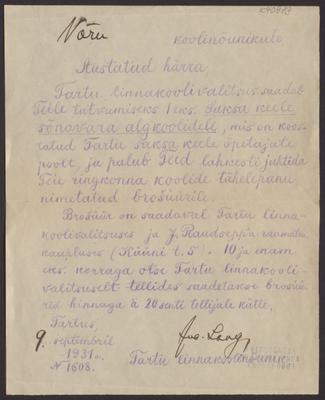 Võru
koolinõunikule
Austatud härra
Tartu linnakoolivalitsus saadab
Teile tutvumiseks 1 eks. Saksa keele
sõnavara algkoolidele, mis on koos-
tatud Tartu saksa keele õpetajate
poolt, ja palub Teid lahkesti juhtida
Teie ringkonna koolide tähelepanu
nimetatud brošüürile.
Brošüür on saadaval Tartu linna-
koolivalitsuses ja J. Raudsepp'a raamatu-
kaupluses (Rüütli t. 5). 10 ja enam
eks. korraga otse Tartu linnakooli-
valitsuselt tellides saadetakse brošüü-
rid hinnaga à 20 senti tellijale kätte.
Tartus,
9. septembril
1931. a.
№ 1608.
Tartu linnakoolinõunik